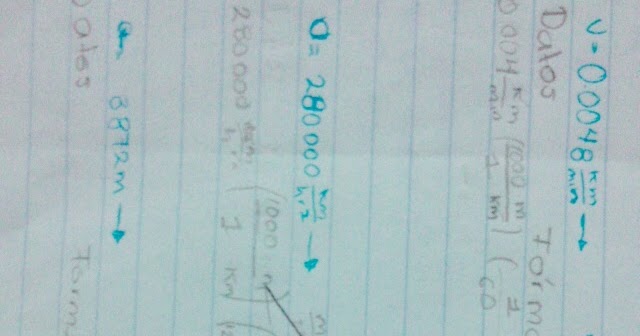 v = 0.0048 km/min →
Datos Fórm
0.004 km/min (1000 m / 1 km) (1 / 60
a = 280000 km/h² →
280000 km/h² (1000 m / 1 km
3872m →
Datos Form